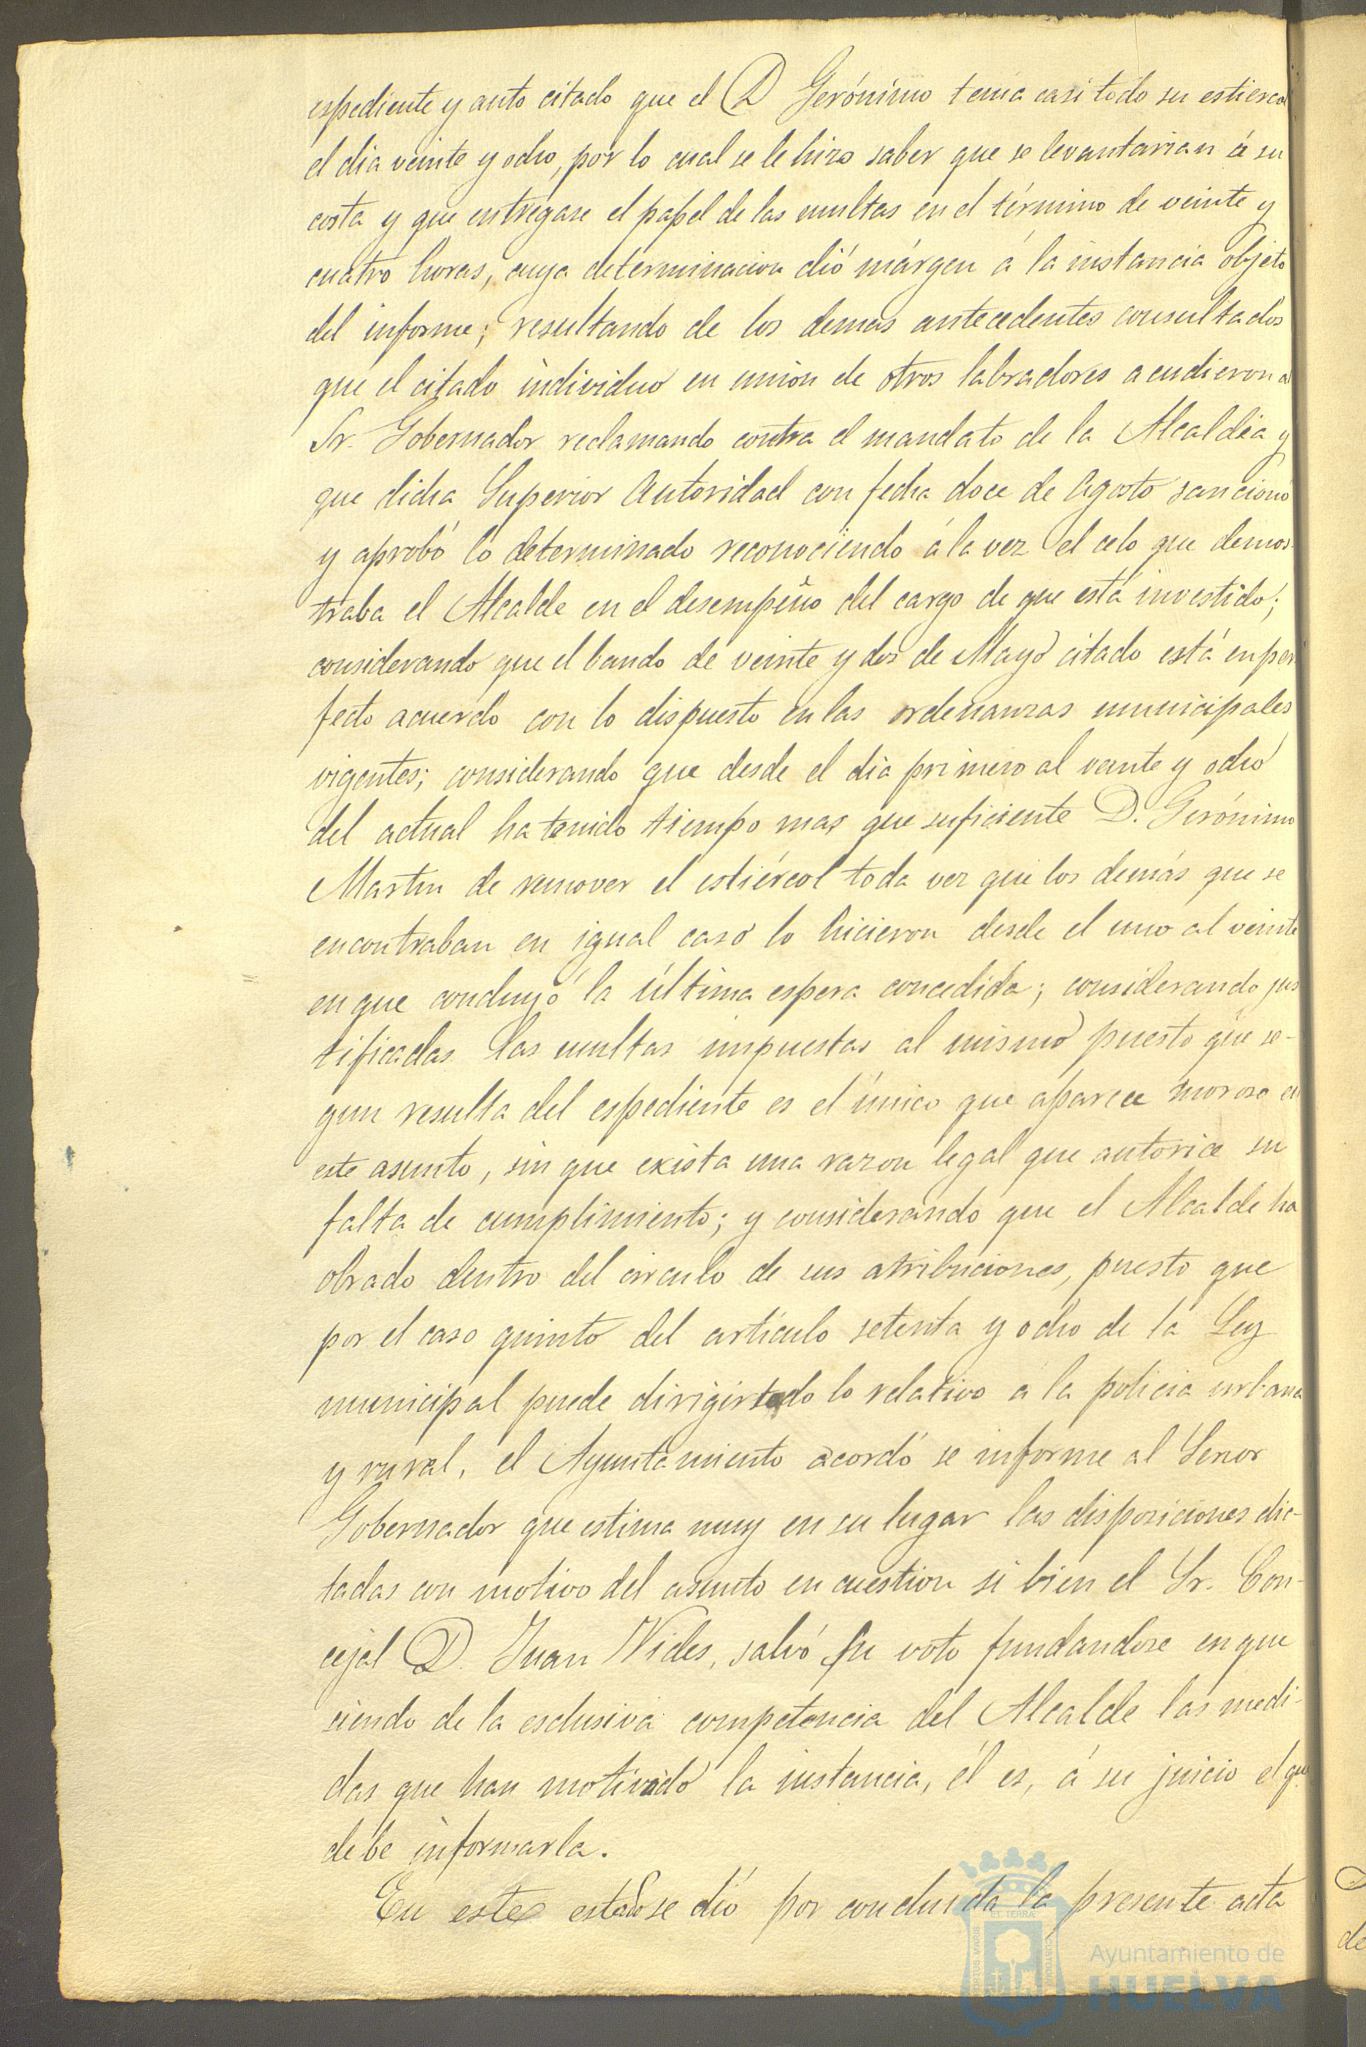 espediente y auto citado que el D Gerónimo tenia casi todo su estiercol
el dia veinte y ocho, por lo cual se le hizo saber que se levantarian á su
costa y que entregase el papel de las multas en el término de veinte y
cuatro horas, cuya determinacion dió márgen á la instancia objeto
del informe; resultando de los demas antecedentes consultados
que el citado individuo en union de otros labradores acudieron al
Sr. Gobernador reclamando contra el mandato de la Alcaldia y
que dicha Superior Autoridad con fecha doce de Agosto sancionó
y aprobó lo determinado reconociendo á la vez el celo que demos-
traba el Alcalde en el desempeño del cargo de que está investido;
considerando que el bando de veinte y dos de Mayo citado está en per
fecto acuerdo con lo dispuesto en las ordenanzas municipales
vigentes; considerando que desde el dia primero al veinte y ocho
del actual ha tenido tiempo mas que suficiente D. Gerónimo
Martin de remover el estiércol toda vez que los demás que se
encontraban en igual caso lo hicieron desde el uno al veinte
en que concluyó la última espera concedida; considerando jus
tificadas las multas impuestas al mismo puesto que se-
gun resulta del espediente es el único que aparece moroso en
este asunto, sin que exista una razon legal que autorice su
falta de cumplimiento; y considerando que el Alcalde ha
obrado dentro del circulo de sus atribuciones, puesto que
por el caso quinto del artículo setenta y ocho de la Ley
municipal puede dirigir todo lo relativo á la policia urbana
y rural, el Ayuntamiento acordó se informe al Señor
Gobernador que estima muy en su lugar las disposiciones dic-
tadas con motivo del asunto en cuestion si bien el Sr. Con-
cejal D. Juan Vides, salvó su voto fundandose en que
siendo de la esclusiva competencia del Alcalde las medi-
das que han motivado la instancia, él es, á su juicio el que
debe informarla.
En este estado se dió por concluida la presente acta
Ayuntamiento de
HUELVA